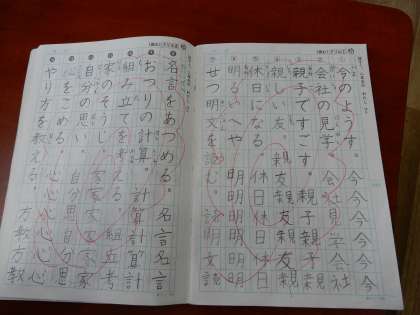 今のようす。今今今今
会社の見学。会社見学会社
親子ですごす。親子親子
親しい友。親友親友親友
休日になる。休日休日休日
明るいへや。明明明明明
せつ明文を読む。読読読
名言をあつめる。名言名言
おつりの計算。計算計算計
組み立てを考える。組立考
家のそうじ。家家家家家
自分の思い。自分思自分思
心をこめる。心心心心心
やり方を教える。方教方教